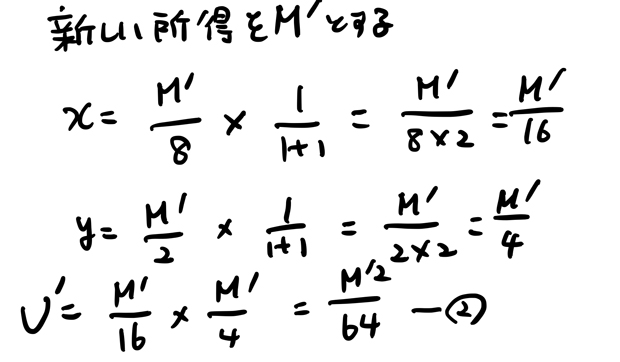 新しい所得をM'とする
x = M'/8 × 1/(1+1) = M'/(8×2) = M'/16
y = M'/2 × 1/(1+1) = M'/(2×2) = M'/4
U' = M'/16 × M'/4 = M'²/64 —②